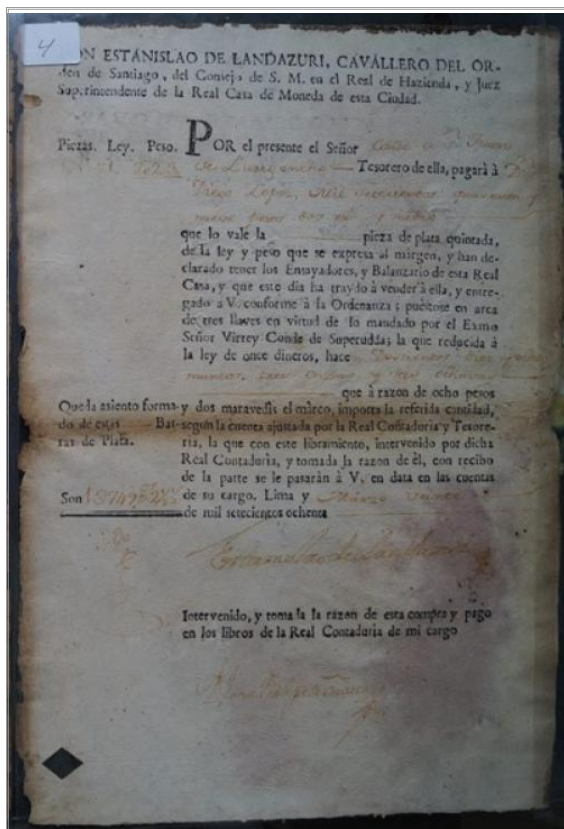 4
ON ESTANISLAO DE LANDAZURI, CAVALLERO DEL OR-
den de Santiago, del Consejo de S. M. en el Real de Hazienda, y Juez
Superintendente de la Real Casa de Moneda de esta Ciudad.
Piezas. Ley. Peso. POR el presente el Señor
de Lurigancho Tesorero de ella, pagarà à D.
Diego Lopez, Mil setecientos quarenta y
nueve pesos dos rs. y medio
que lo vale la pieza de plata quintada,
de la ley y peso que se expresa al màrgen, y han de-
clarado tener los Ensayadores, y Balanzario de esta Real
Casa, y que este dia ha traydo à vender à ella, y entre-
gado à V. conforme à la Ordenanza; puestose en arca
de tres llaves en virtud de lo mandado por el Exmo
Señor Virrey Conde de Superudda; la que reducida à
la ley de once dineros, hace Doscientos diez y
marcos, tres onzas y tres ochavas
que à razon de ocho pesos
Queda asiento forma- y dos maravedis el màrco, importa la referida cantidad,
do de estas Bar- segun la cuenta ajustada por la Real Contaduria y Tesore-
ras de Plata. ria, la que con este libramiento, intervenido por dicha
Real Contaduria, y tomada la razon de èl, con recibo
de la parte se le pasaràn à V. en data en las cuentas
Son de su cargo. Lima y Marzo
de mil setecientos ochenta
Estanislao de Landazuri
Intervenido, y tomada la razon de esta compra y pago
en los libros de la Real Contaduria de mi cargo